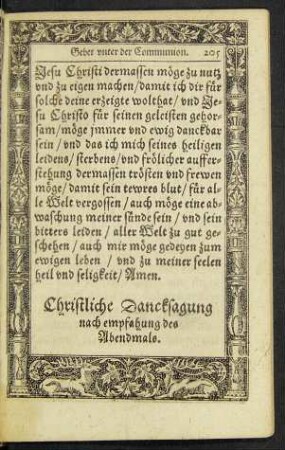 Gebet vnter der Communion. 205
Jesu Christi dermassen möge zu nutz
vnd zu eigen machen/damit ich dir für
solche deine erzeigte wolthat/ vnd Je-
su Christo für seinen geleisten gehor-
sam/möge jmmer vnd ewig danckbar
sein/ vnd das ich mich seines heiligen
leidens/ sterbens/ vnd frölicher auffer-
stehung dermassen trösten vnd frewen
möge/ damit sein tewres blut/ für al-
le Welt vergossen/ auch möge eine ab-
waschung meiner sünde sein/ vnd sein
bitters leiden/ aller Welt zu gut ge-
schehen/ auch mir möge gedeyen zum
ewigen leben/ vnd zu meiner seelen
heil vnd seligkeit/ Amen.
Christliche Dancksagung
nach empfahung des
Abendmals.